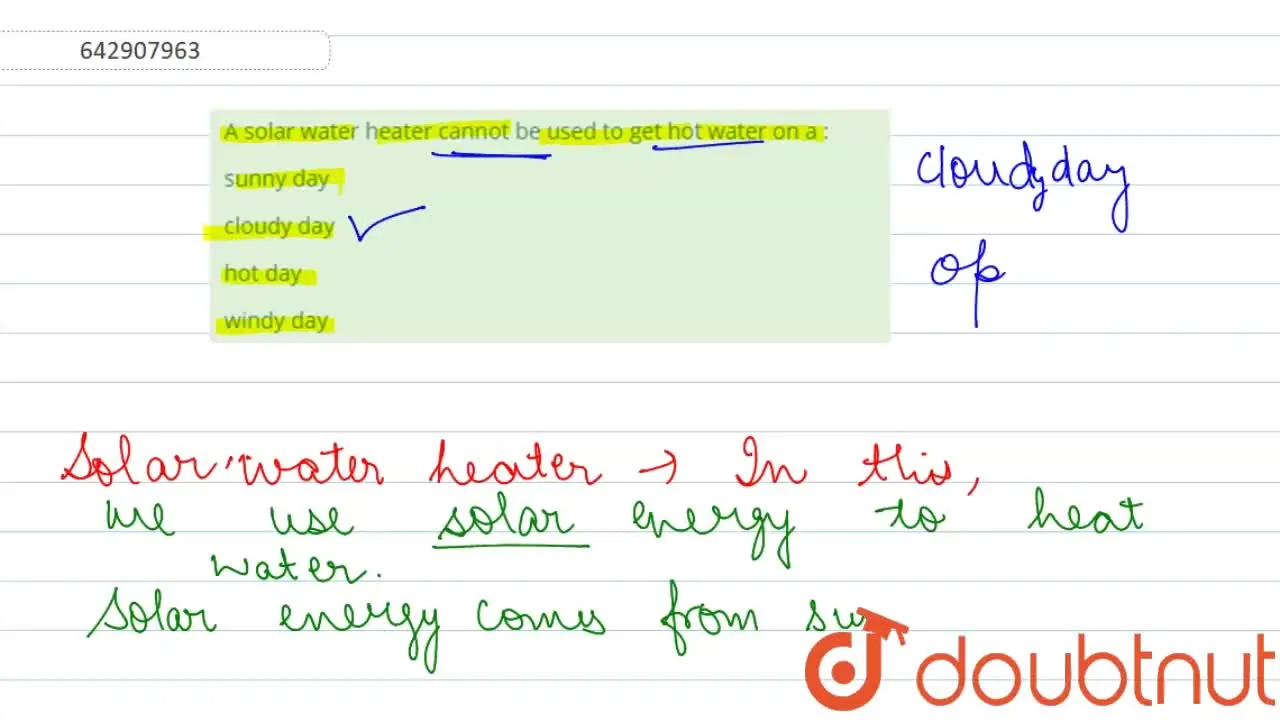 642907963
A solar water heater cannot be used to get hot water on a :
sunny day
cloudy day
hot day
windy day
cloudy day
op
Solar water heater → In this,
we use solar energy to heat
water.
Solar energy comes from
doubtnut